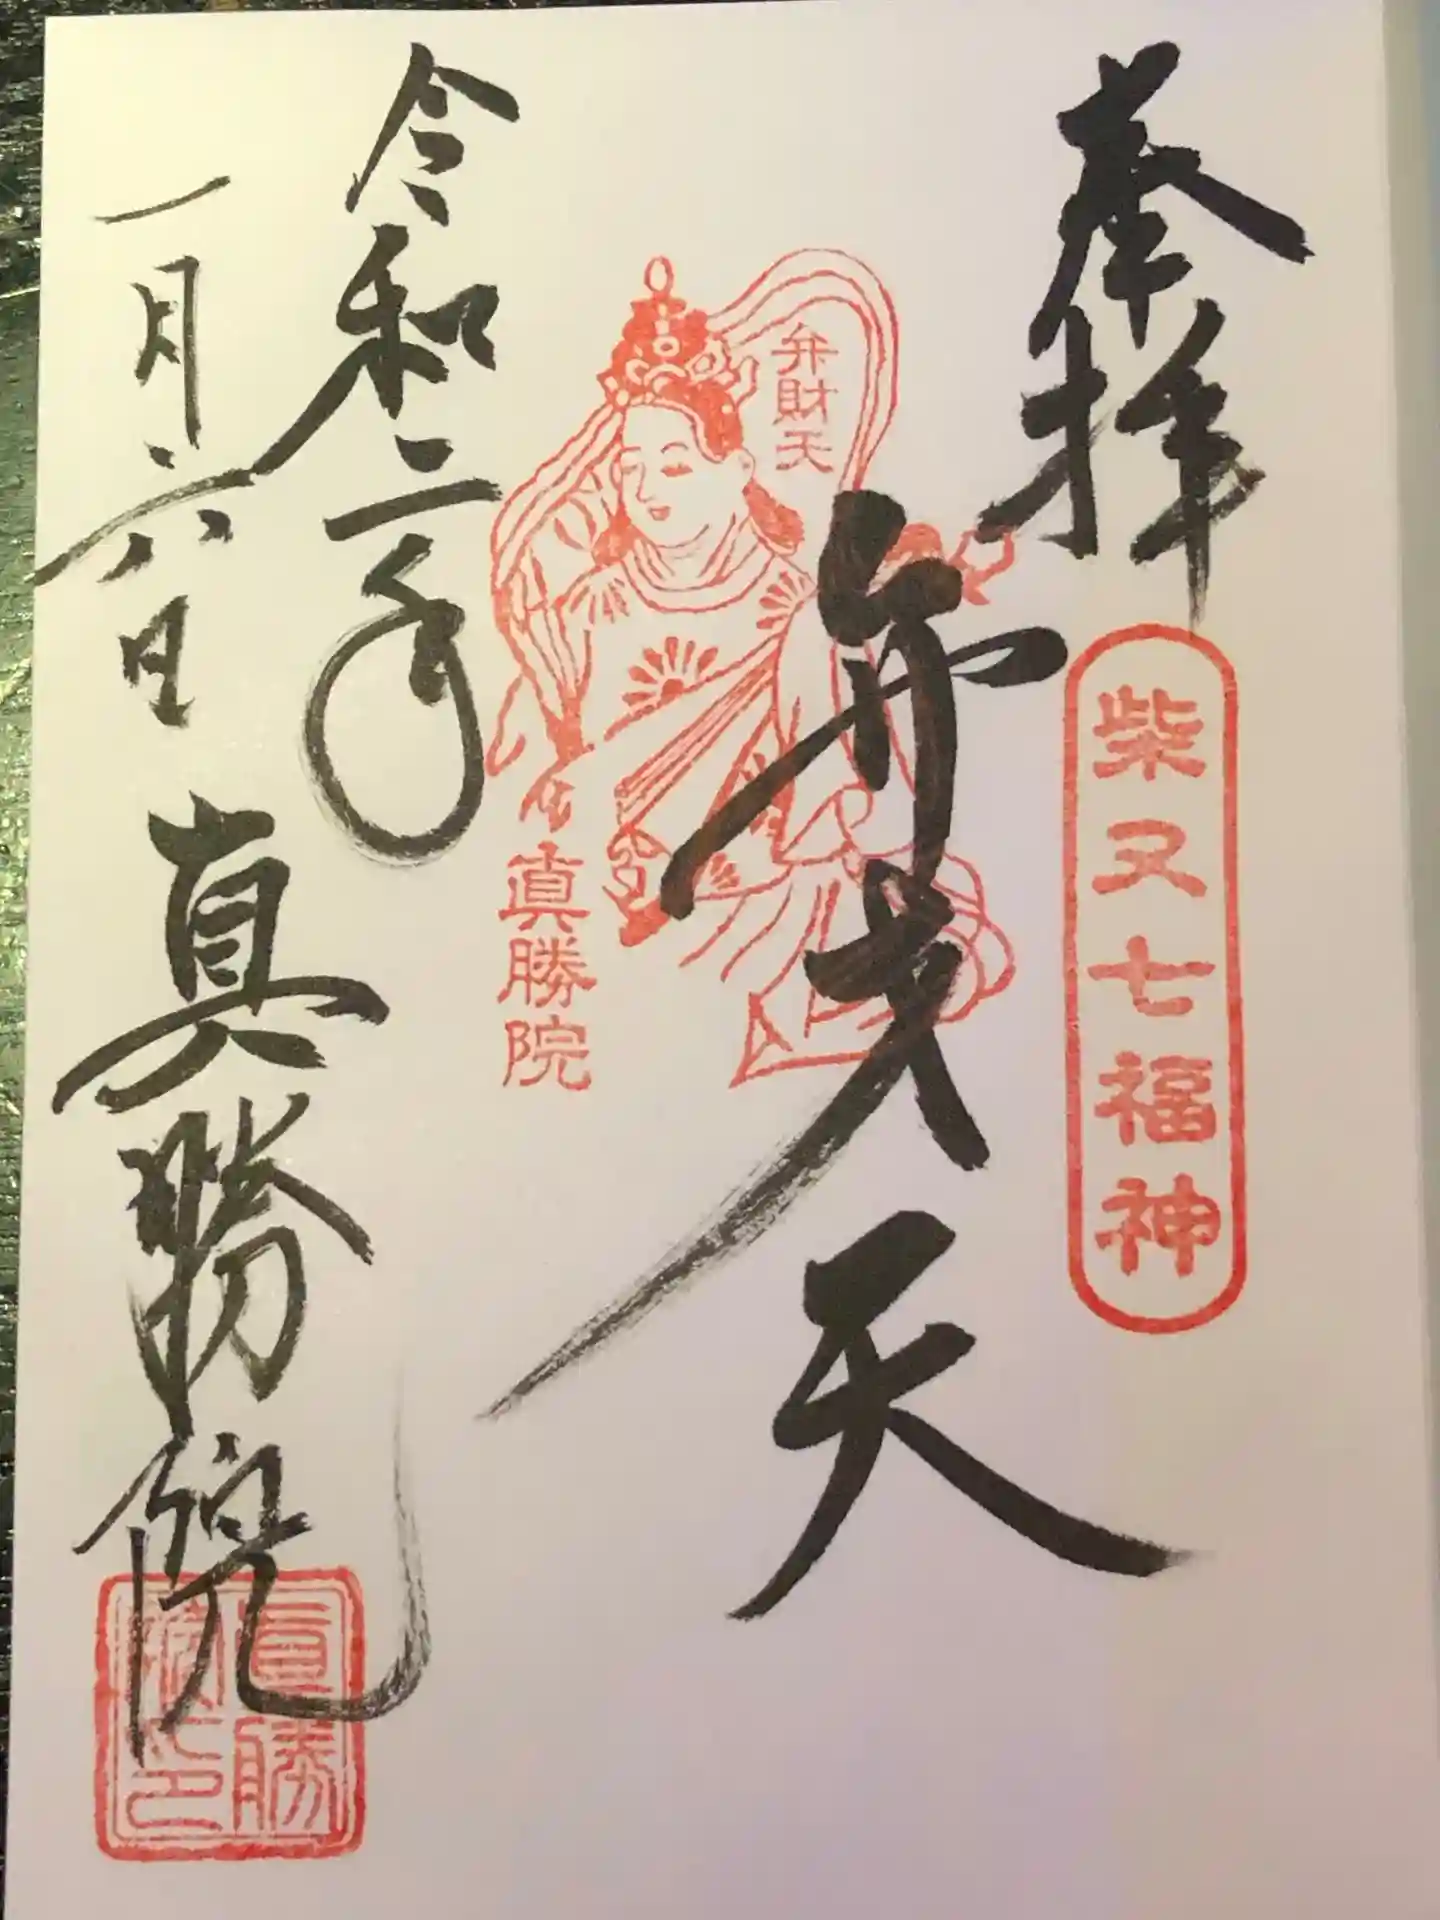 奉拝
柴又七福神
弁才天
弁財天
真勝院
令和二年
一月六日 真勝院
真勝院印